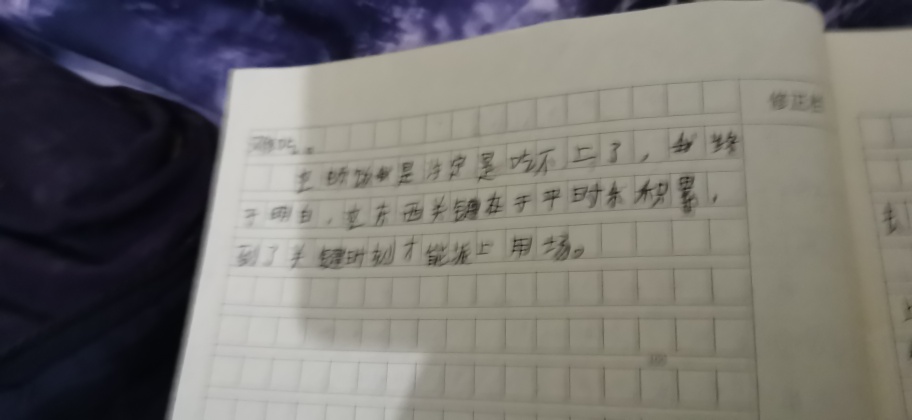 修正栏
是注定是吃不上了，我终
于明白，在东西关键在于平时东积累，
到了关键时刻才能派上用场。